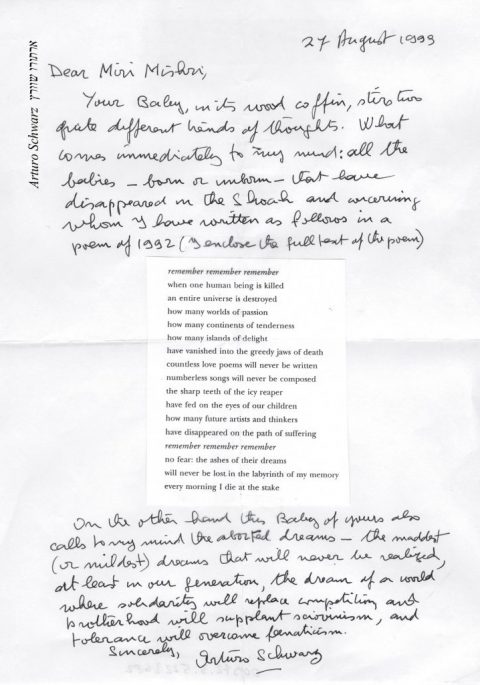 27 August 1993
Arturo Schwarz ארתורו שוורץ
Dear Miri Mishri,
Your Baby, in its wood coffin, stirs two
quite different kinds of thoughts. What
comes immediately to my mind: all the
babies – born or unborn – that have
disappeared in the Shoah and concerning
whom I have written as follows in a
poem of 1992 (I enclose the full text of the poem)
remember remember remember
when one human being is killed
an entire universe is destroyed
how many worlds of passion
how many continents of tenderness
how many islands of delight
have vanished into the greedy jaws of death
countless love poems will never be written
numberless songs will never be composed
the sharp teeth of the icy reaper
have fed on the eyes of our children
how many future artists and thinkers
have disappeared on the path of suffering
remember remember remember
no fear: the ashes of their dreams
will never be lost in the labyrinth of my memory
every morning I die at the stake
On the other hand this Baby of yours also
calls to my mind the aborted dreams – the maddest
(or mildest) dreams that will never be realized,
at least in our generation, the dream of a world
where solidarity will replace competition and
brotherhood will supplant and
tolerance will overcome fanaticism.
Sincerely, Arturo Schwarz